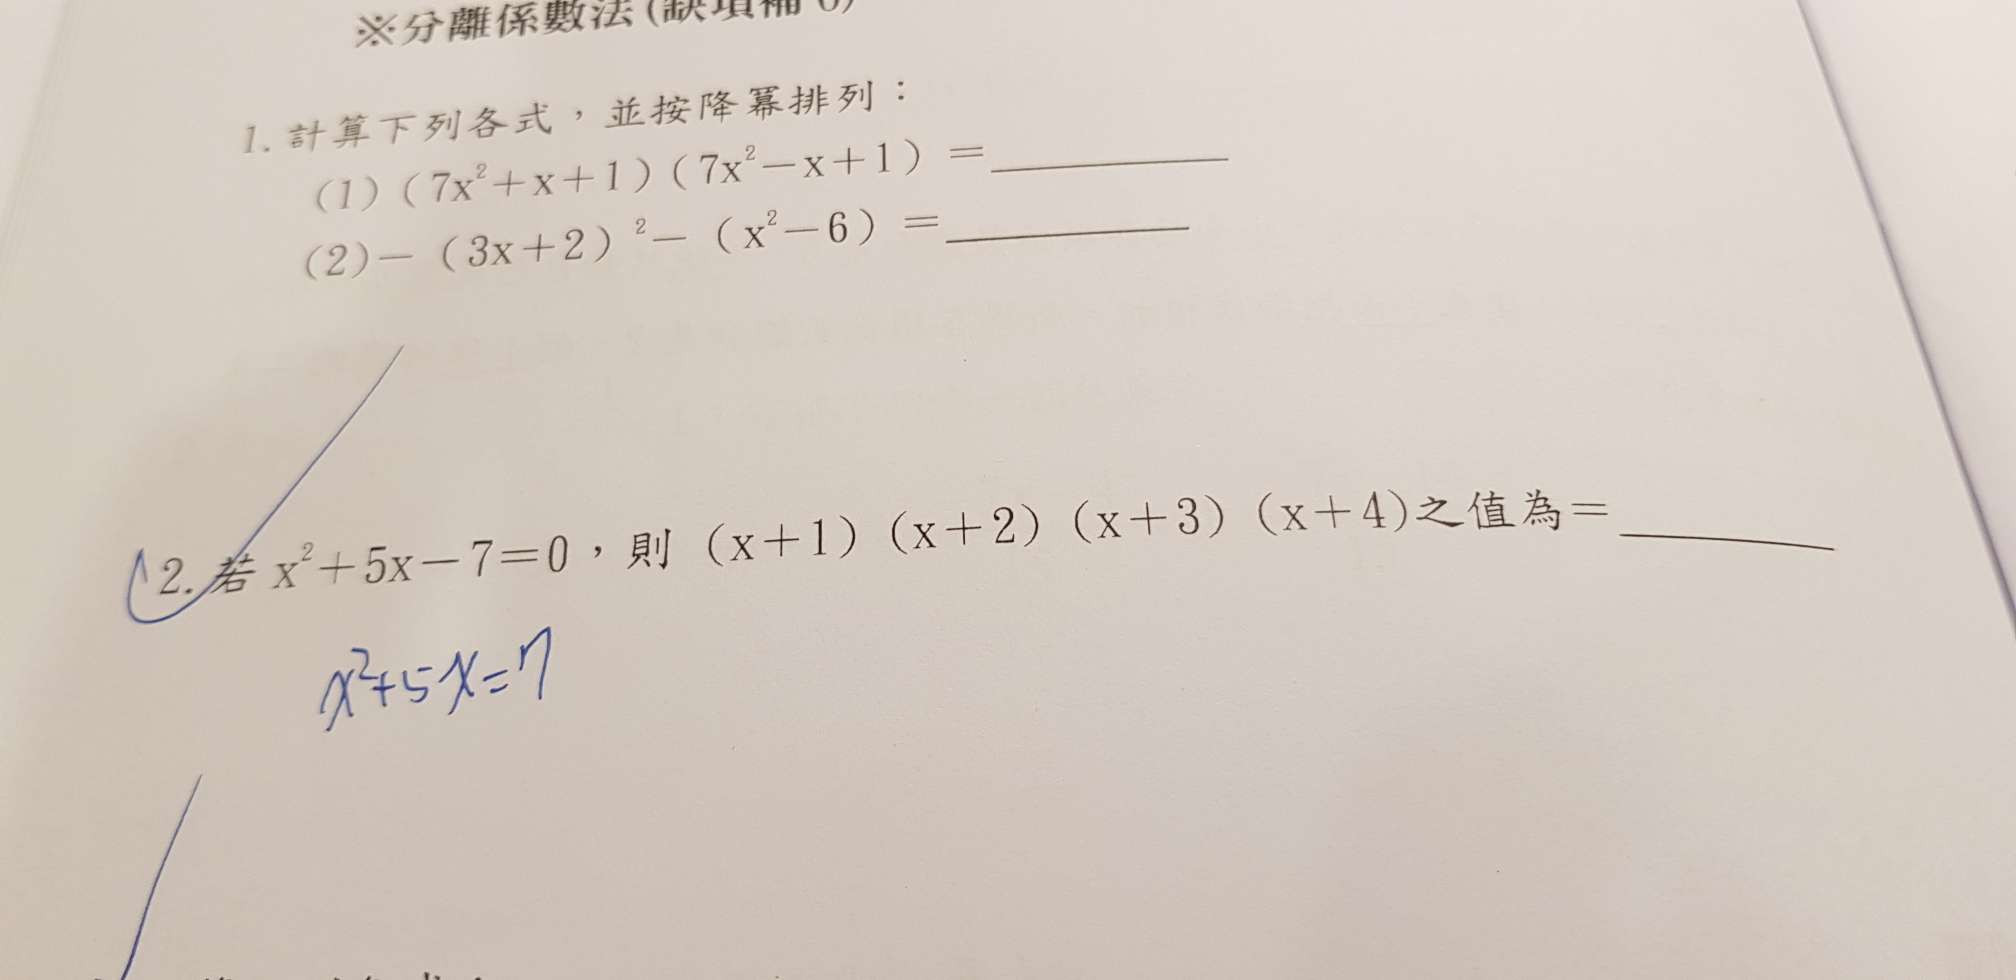 ※分離係數法(缺項補0)
1.計算下列各式，並按降冪排列：
(1)（7x²＋x＋1）（7x²－x＋1）＝
(2)－（3x＋2）²－（x²－6）＝
2.若 x²＋5x－7＝0，則（x＋1）（x＋2）（x＋3）（x＋4)之值為＝
x²+5x=7